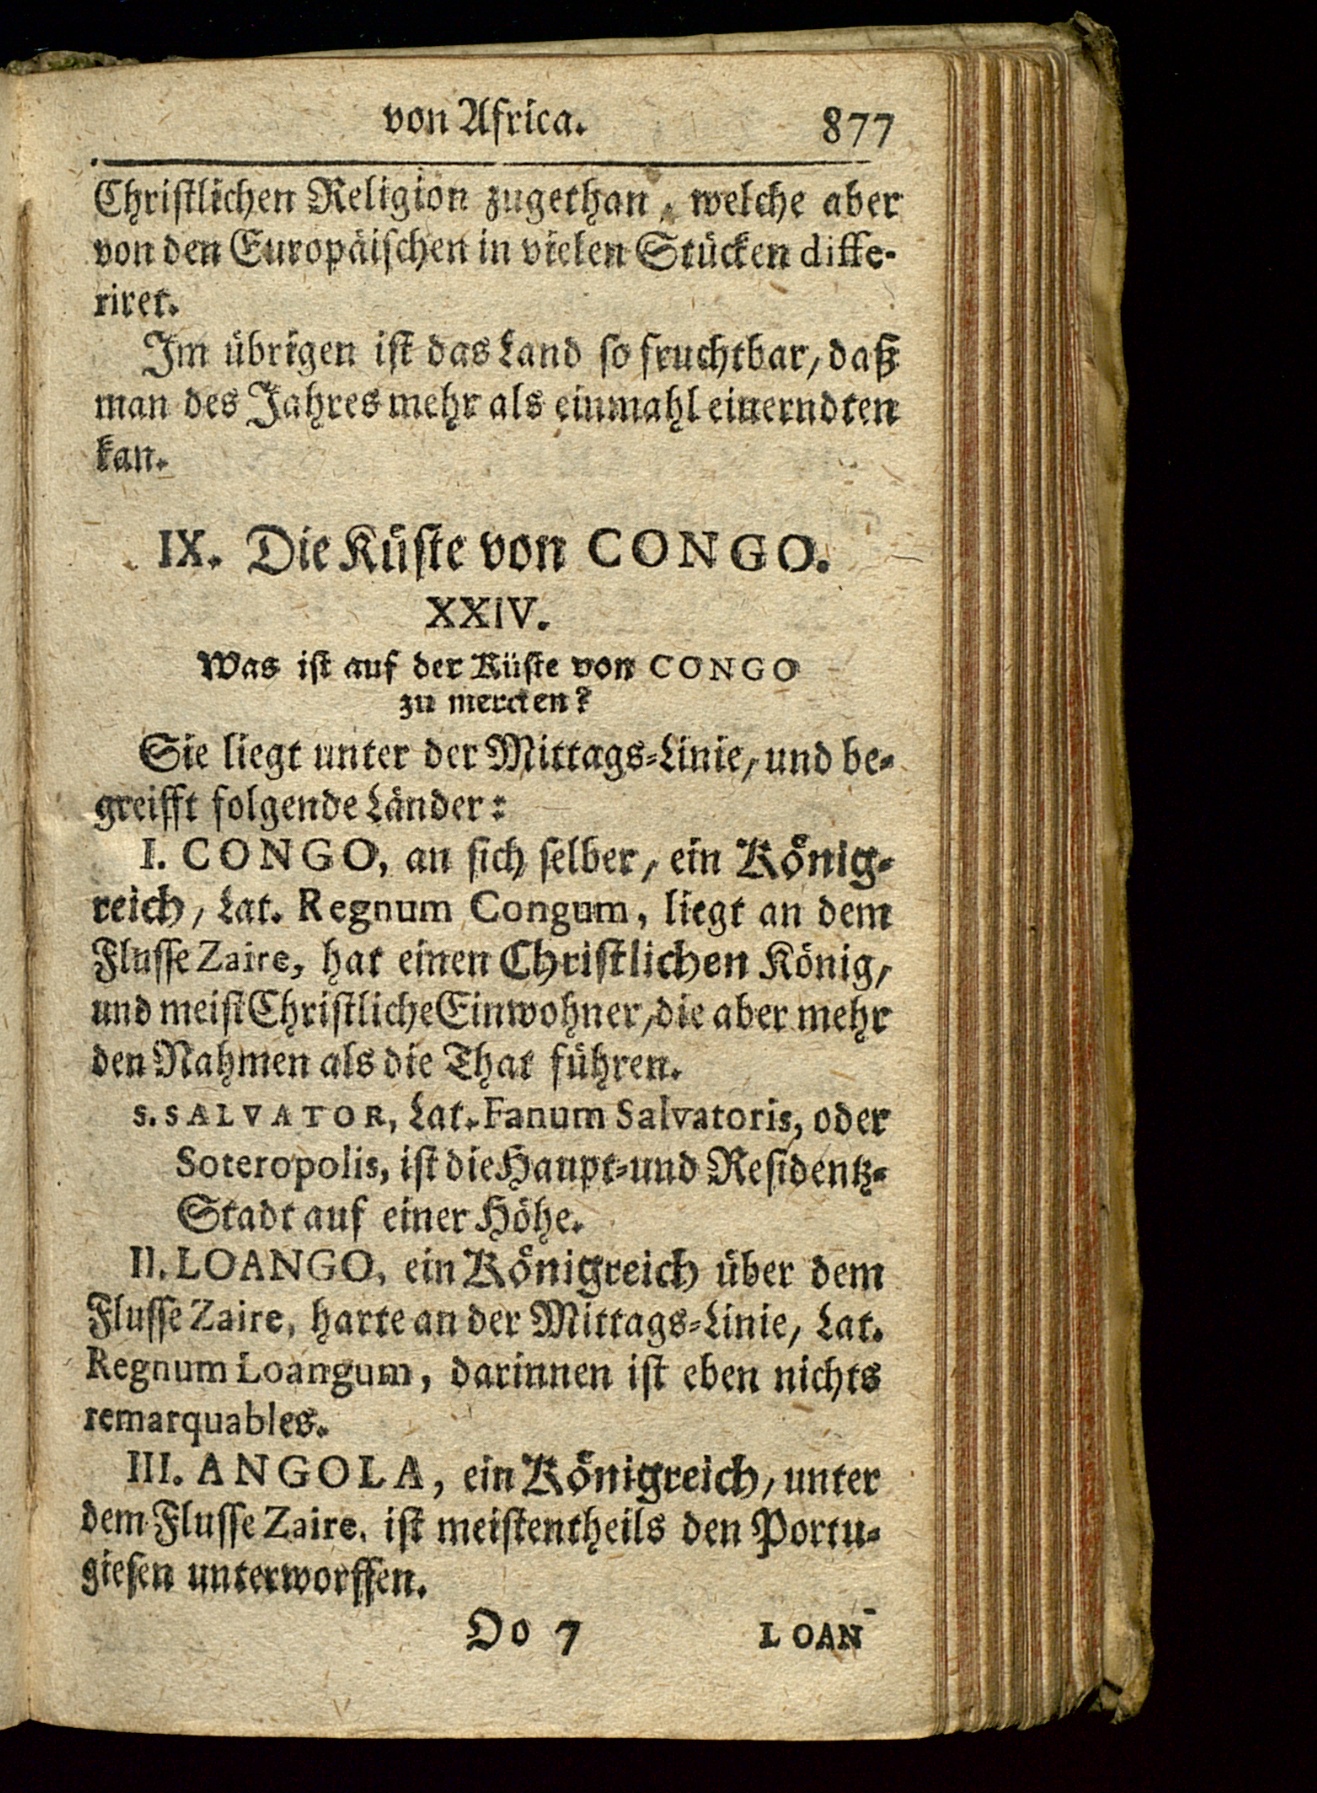 von Africa. 877
Christlichen Religion zugethan, welche aber
von den Europäischen in vielen Stücken diffe-
riret.
Im übrigen ist das Land so fruchtbar, daß
man des Jahres mehr als einmahl einerndten
kan.
IX. Die Küste von CONGO.
XXIV.
Was ist auf der Küste von CONGO
zu mercken?
Sie liegt unter der Mittags-Linie, und be-
greifft folgende Länder:
I. CONGO, an sich selber, ein König-
reich, Lat. Regnum Congum, liegt an dem
Flusse Zaire, hat einen Christlichen König,
und meist Christliche Einwohner, die aber mehr
den Nahmen als die That führen.
S. SALVATOR, Lat. Fanum Salvatoris, oder
Soteropolis, ist die Haupt-und Residentz-
Stadt auf einer Höhe.
II. LOANGO, ein Königreich über dem
Flusse Zaire, harte an der Mittags-Linie, Lat.
Regnum Loangum, darinnen ist eben nichts
remarquables.
III. ANGOLA, ein Königreich, unter
dem Flusse Zaire, ist meistentheils den Portu-
giesen unterworffen.
Oo 7 LOAN-